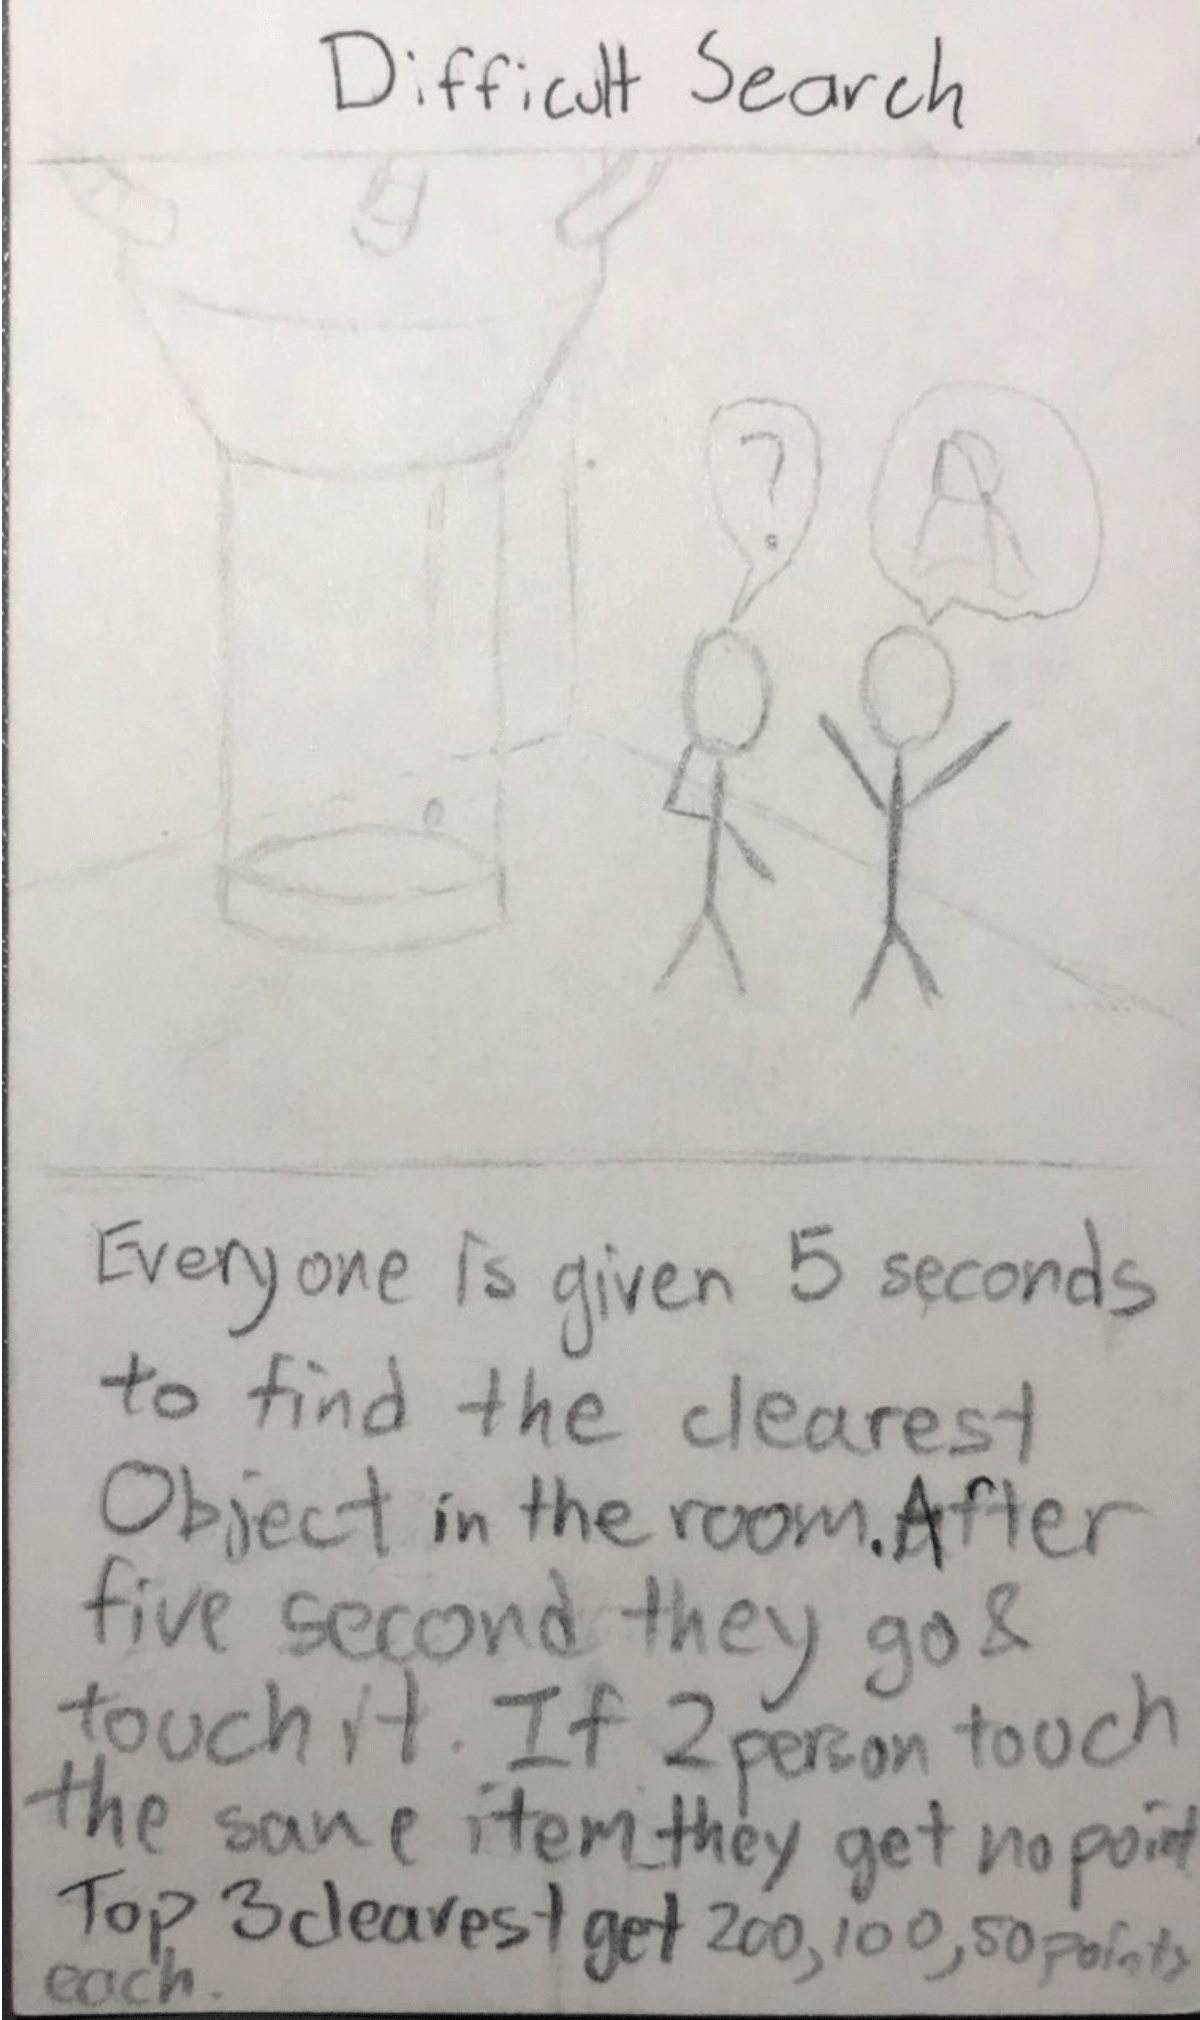 Difficult Search
?
Everyone is given 5 seconds
to find the clearest
Object in the room. After
five second they go &
touch it. If 2 person touch
the same item they get no point
Top 3 clearest get 200, 100, 50 points
each.